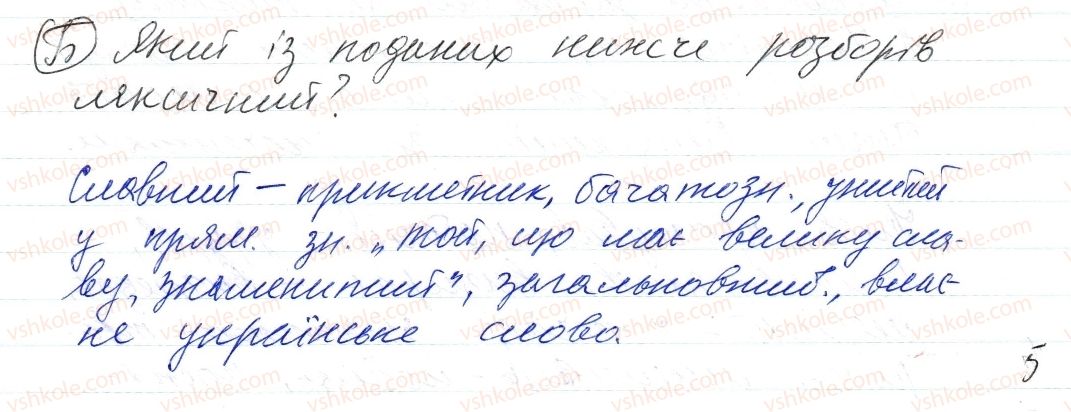 Б Який із поданих нижче розборів
лексичний?
Славний – прикметник, багатозн., ужитий
у прям. зн. „той, що має велику сла-
ву, знаменитий", загальновжив., влас-
не українське слово.
5